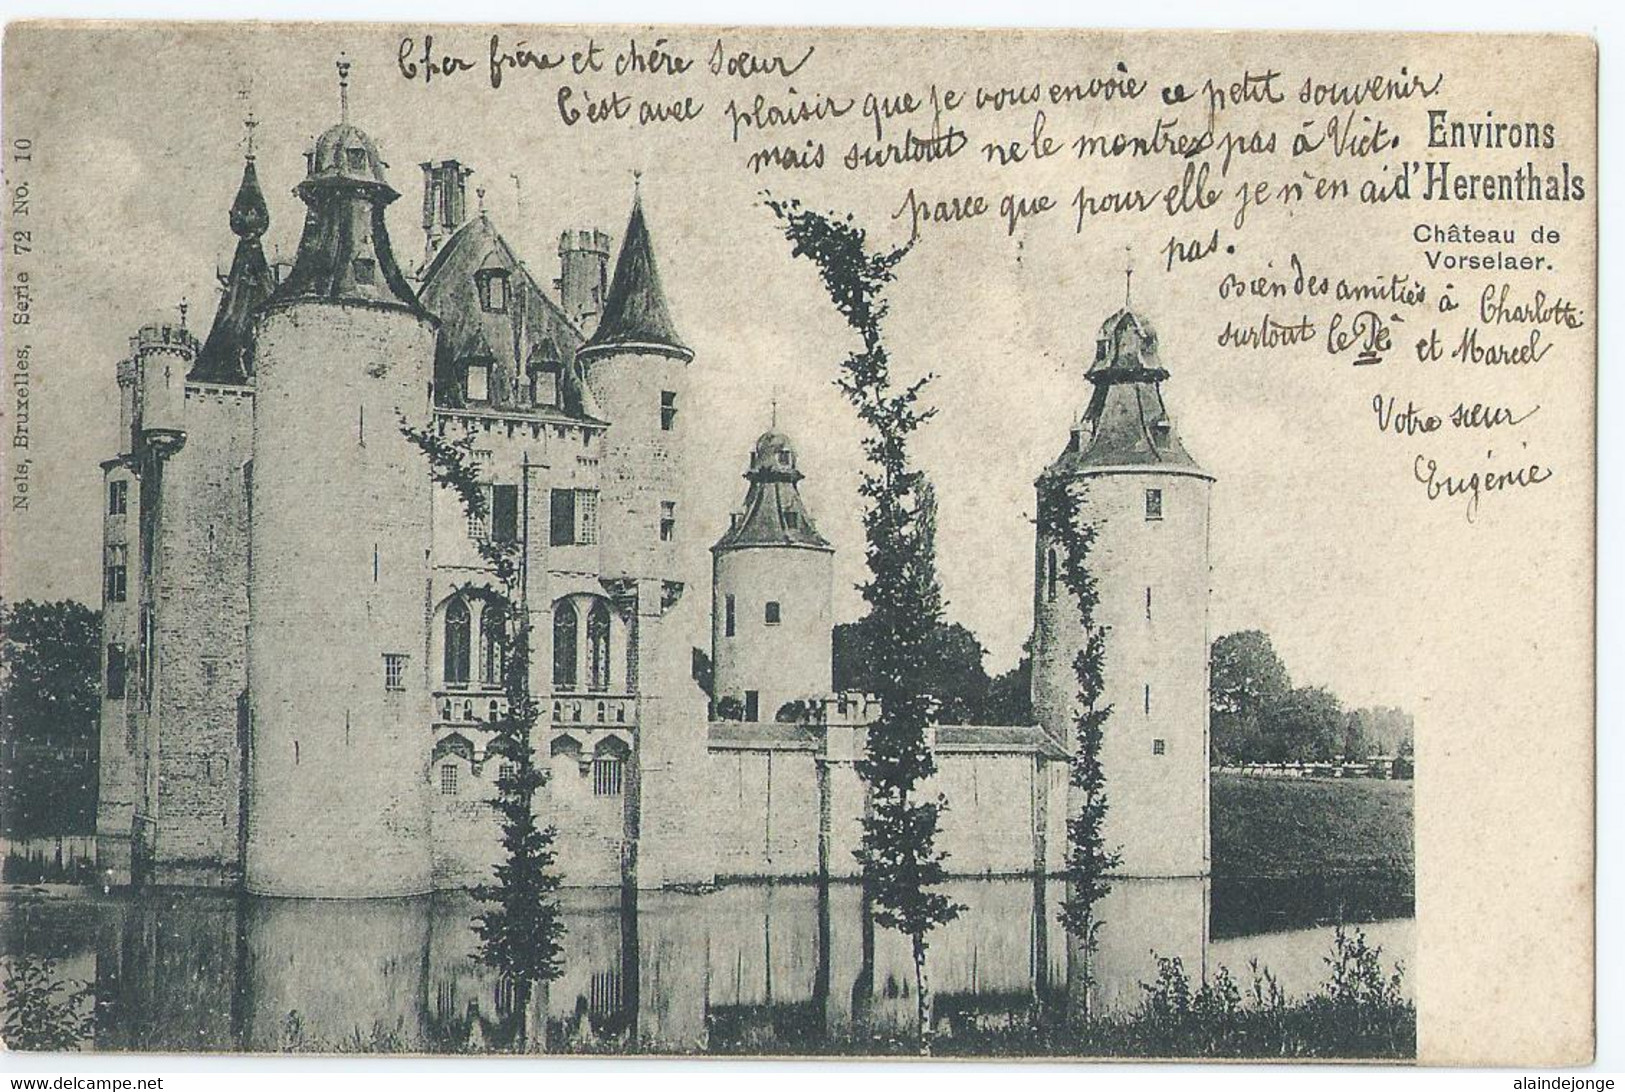 Cher frère et chère Sœur
C'est avec plaisir que je vous envoie ce petit souvenir
mais surtout ne le montrez pas à Vict.
parce que pour elle je n'en ai
pas.
Environs
d'Herenthals
Château de
Vorselaer.
Bien des amitiés à Charlotte
surtout le Pé et Marcel
Votre sœur
Eugénie
Nels, Bruxelles, Serie 72 No. 10
alaindejonge